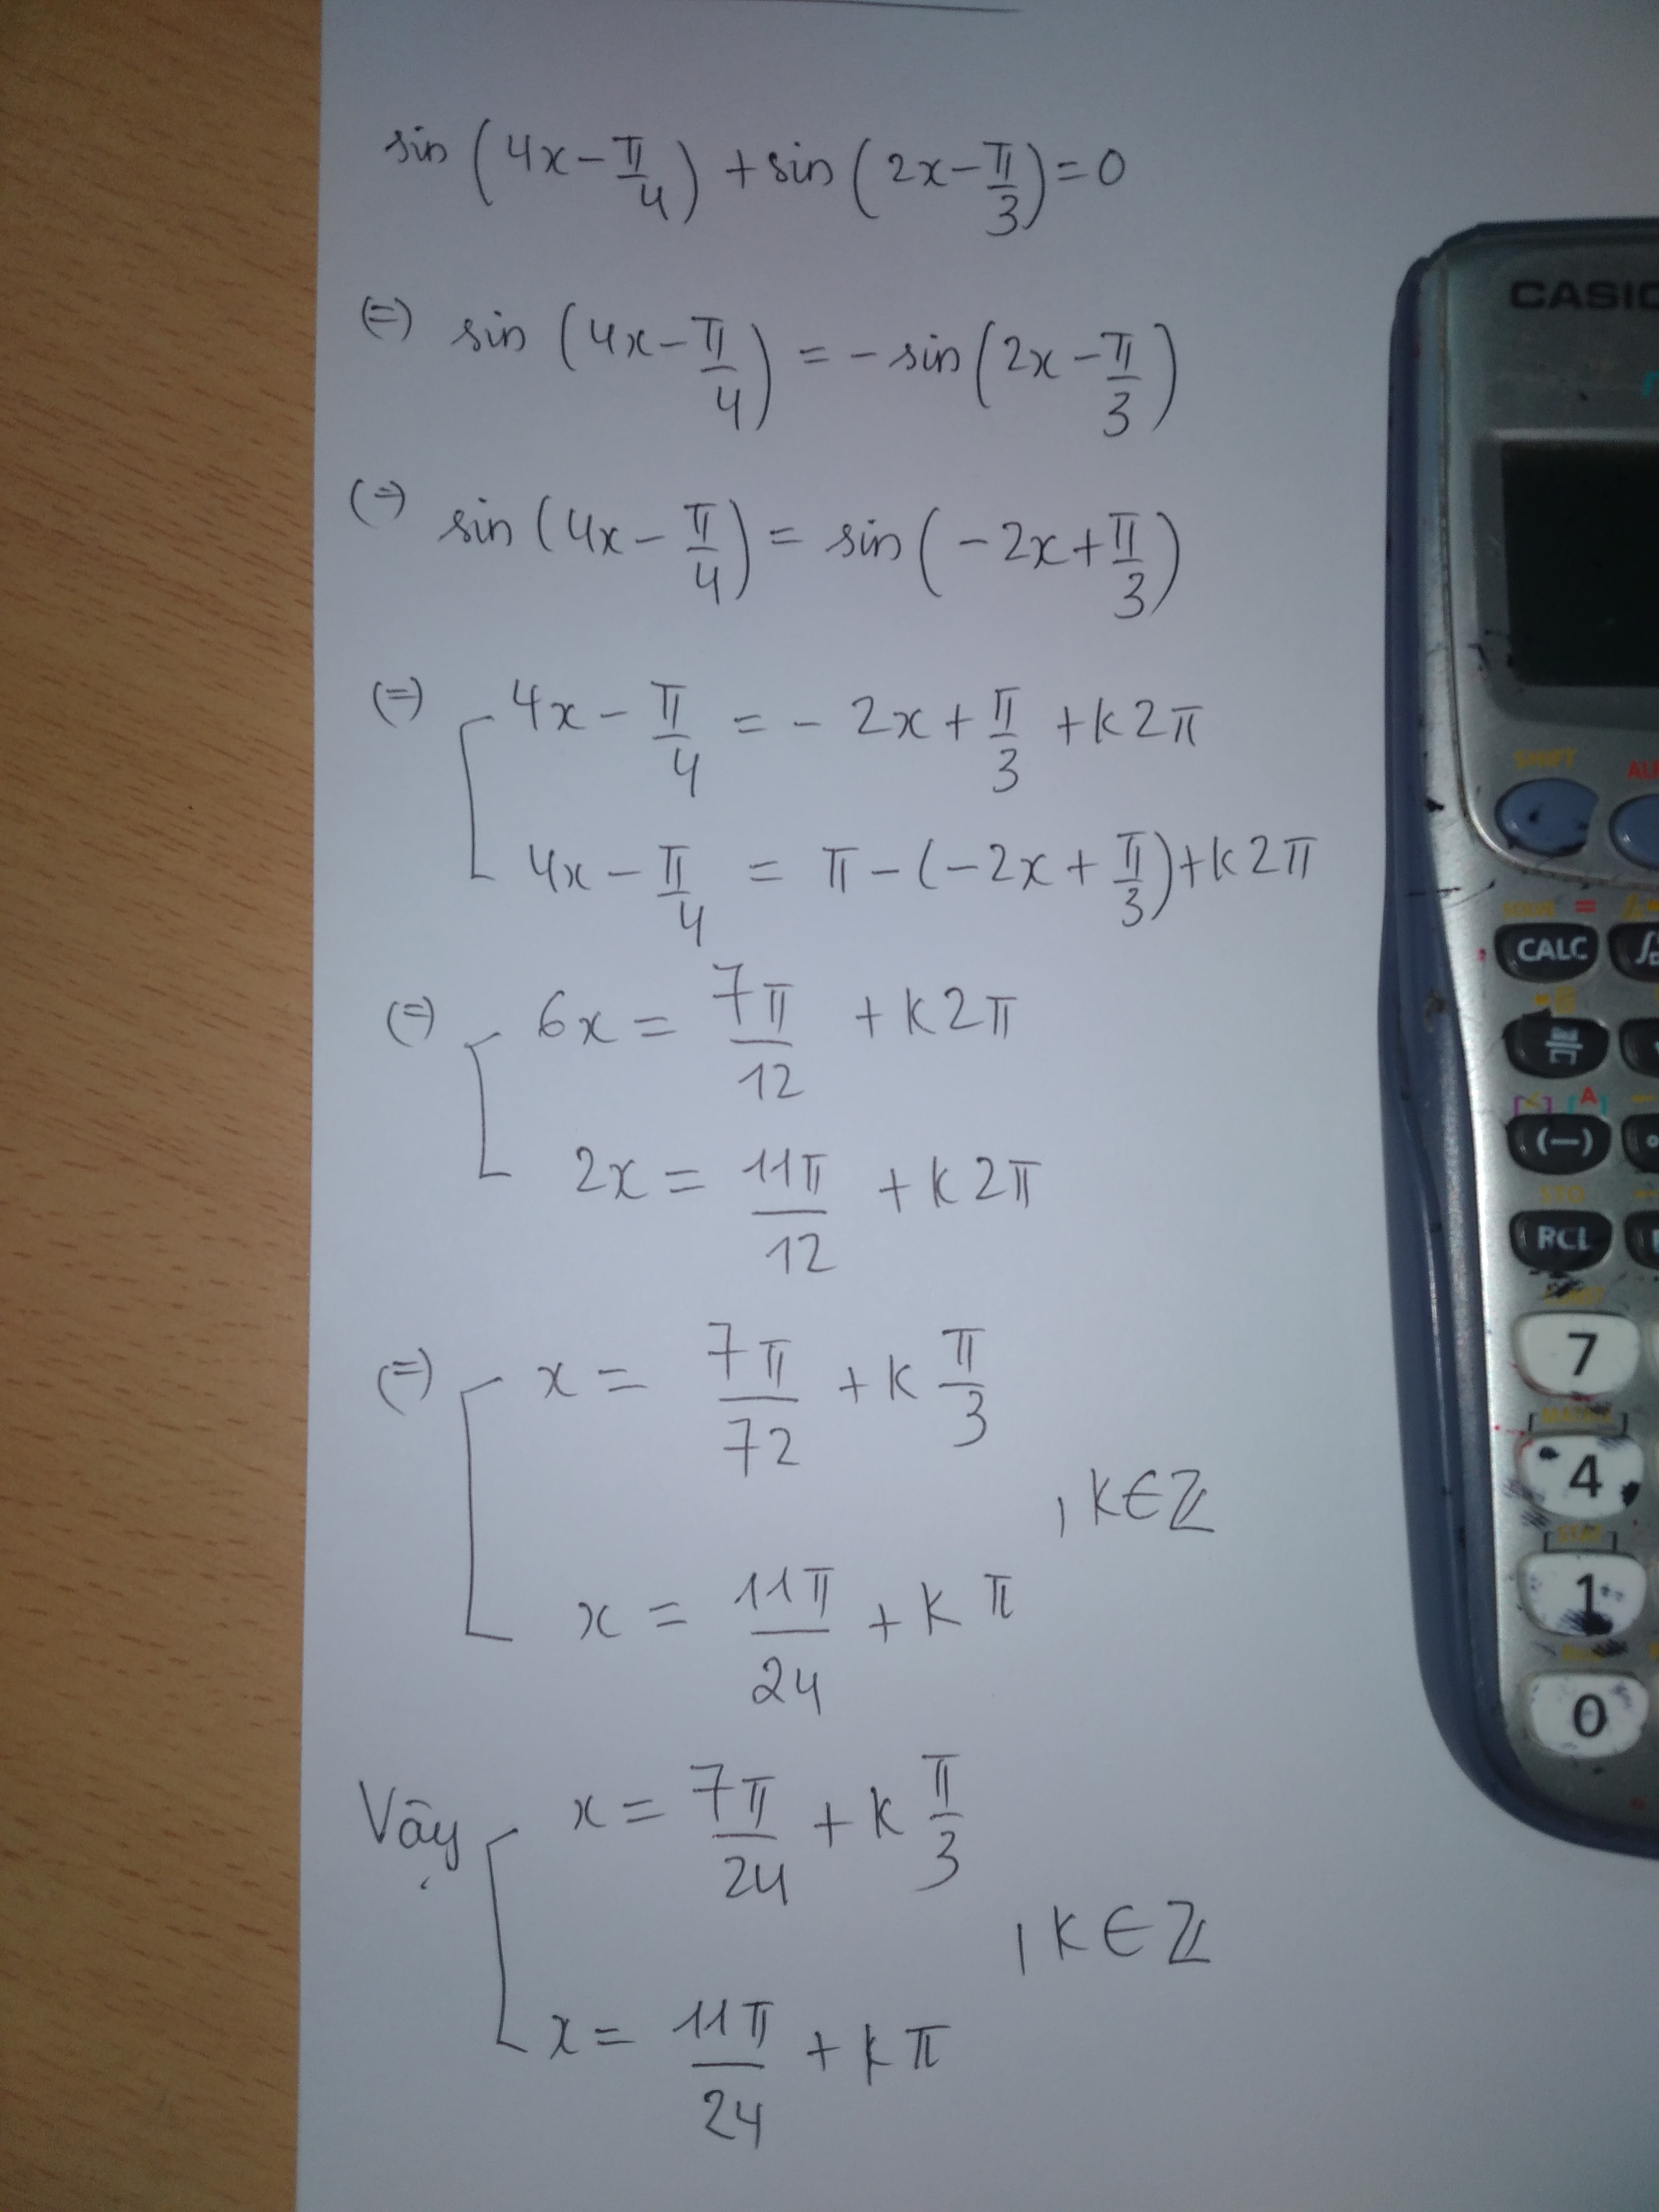 sin (4x - π/4) + sin (2x - π/3) = 0
(=) sin (4x - π/4) = - sin (2x - π/3)
(=) sin (4x - π/4) = sin (-2x + π/3)
(=) [ 4x - π/4 = - 2x + π/3 + k2π
4x - π/4 = π - (-2x + π/3) + k2π
(=) [ 6x = 7π/12 + k2π
2x = 11π/12 + k2π
(=) [ x = 7π/72 + k π/3
, k∈ℤ
x = 11π/24 + k π
Vậy [ x = 7π/24 + k π/3
, k∈ℤ
x = 11π/24 + kπ
CASIO
SHIFT
SOLVE =
CALC
(-)
STO
RCL
CONST
7
MATRIX
4
STAT
1
0